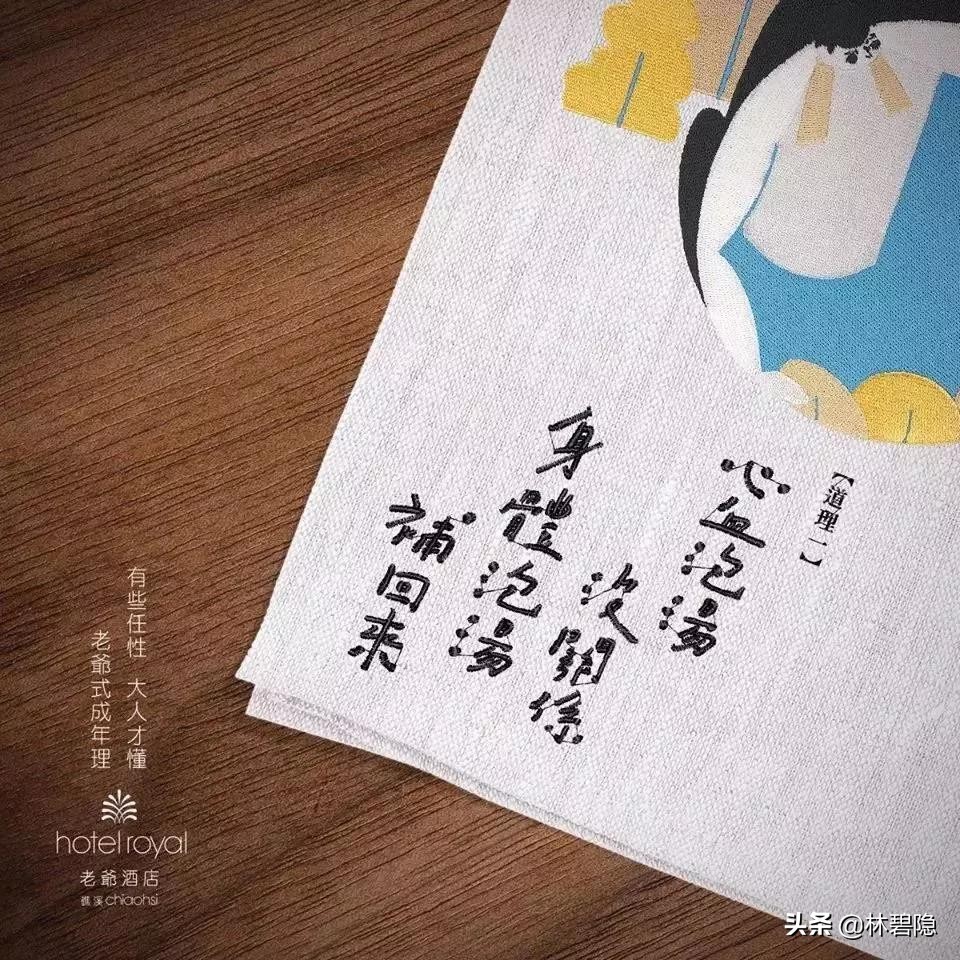 【道理一】
心血泡湯
沒關係
身體泡湯
補回來
有些任性 大人才懂
老爺式成年理
hotel royal
老爺酒店
礁溪 chiaohsi
头条 @林碧隐